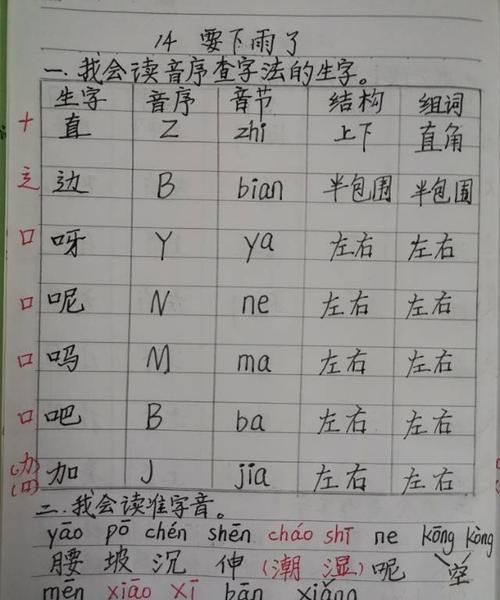 14 要下雨了
一.我会读音序查字法的生字。
生字 音序 音节 结构 组词
十 直 Z zhi 上下 直角
辶 边 B bian 半包围 半包围
口 呀 Y ya 左右 左右
口 呢 N ne 左右 左右
口 吗 M ma 左右 左右
口 吧 B ba 左右 左右
(力)(口) 加 J jia 左右 左右
二.我会读准字音。
yāo pō chén shēn cháo shī ne kōng kòng
腰 坡 沉 伸 (潮 湿) 呢 空
mēn xiāo xī bān xiǎng